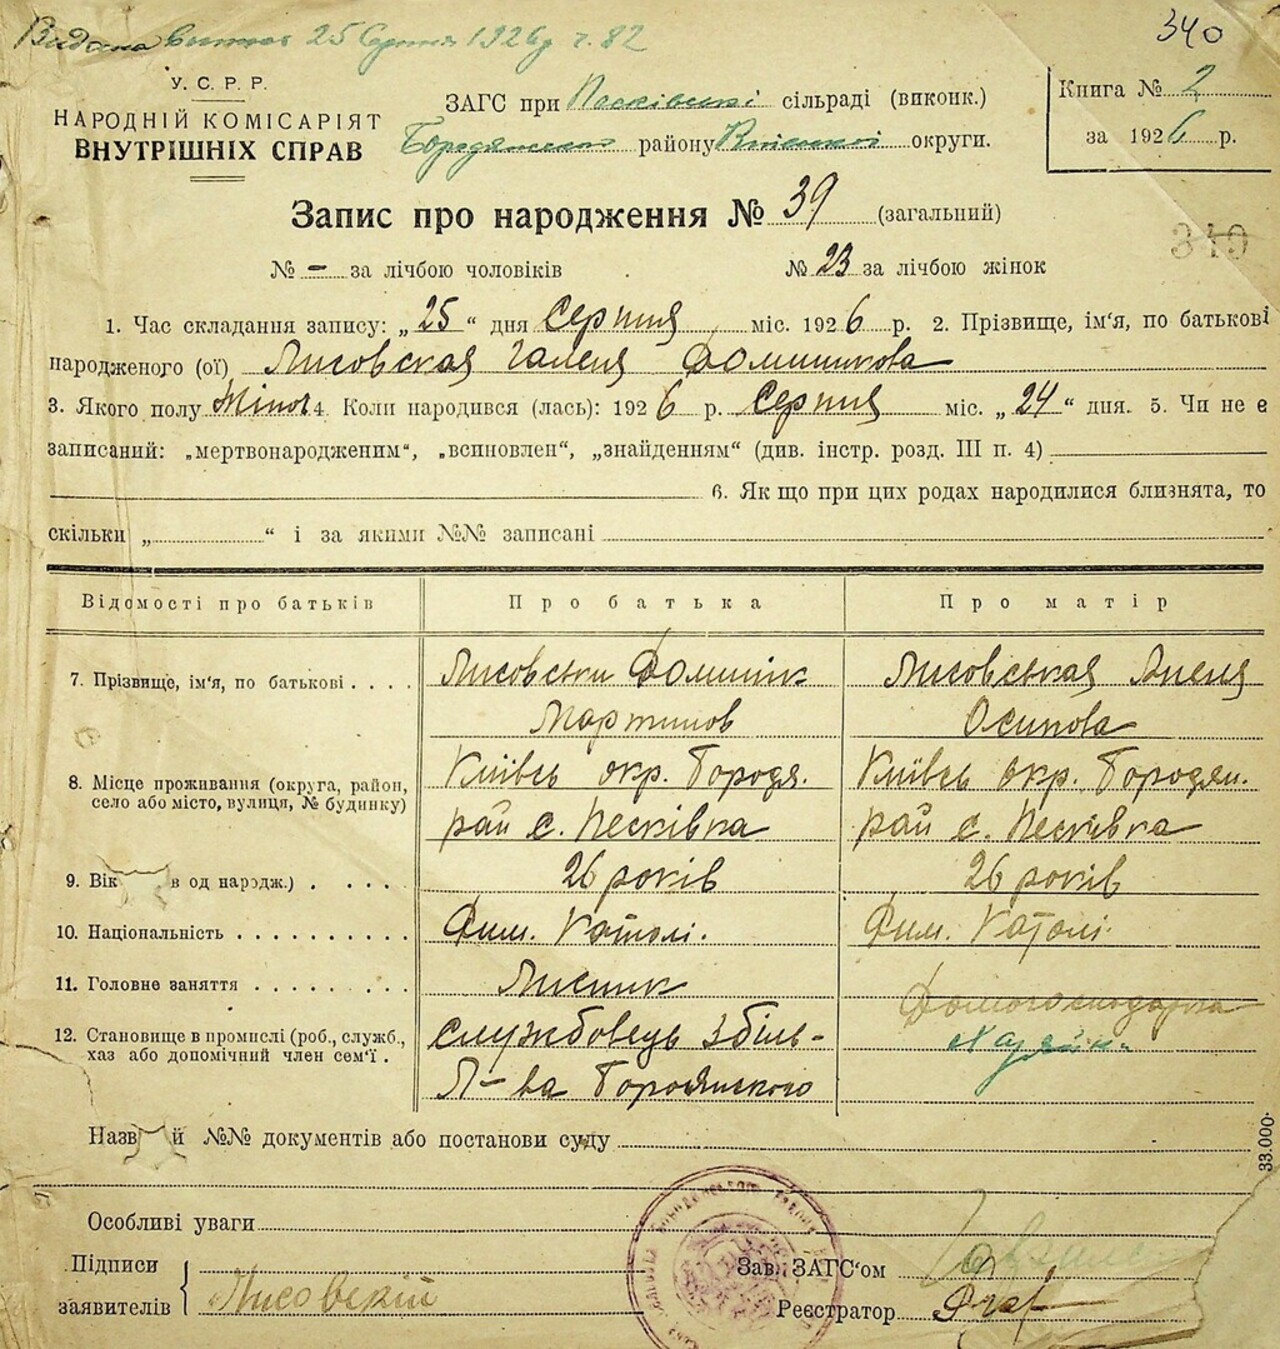 Видана витяг 25 Серпня 1926 р ч. 82
340
У. С. Р. Р.
НАРОДНІЙ КОМІСАРІЯТ
ВНУТРІШНІХ СПРАВ
ЗАГС при Песківські сільраді (виконк.)
Бородянського району Київської округи.
Книга № 2
за 1926 р.
Запис про народження № 39 (загальний)
340
№ – за лічбою чоловіків
№ 23 за лічбою жінок
1. Час складання запису: „25“ дня Серпня міс. 1926 р. 2. Прізвище, ім'я, по батькові
народженого (ої) Лисовская Галеня Доминикова
3. Якого полу Жіноч 4. Коли народився (лась): 1926 р. Серпня міс. „24“ дня. 5. Чи не є
записаний: „мертвонародженим“, „всиновлен“, „знайденням“ (див. інстр. розд. III п. 4)
6. Як що при цих родах народилися близнята, то
скільки „ “ і за якими №№ записані
Відомості про батьків Про батька Про матір
7. Прізвище, ім'я, по батькові . . . . Лисовськи Доминік Лисовськая Анеля
Мартинов Осипова
8. Місце проживання (округа, район, Київсь окр. Бородя. Київсь окр. Бородян.
село або місто, вулиця, № будинку) рай с. Песківка рай с. Песківка
9. Вік в од народж.) . . . . . 26 років 26 років
10. Національність . . . . . . . . . . Рим. Католі. Рим. Католі.
11. Головне заняття . . . . . . . . Лисник Домогосподарка
12. Становище в промислі (роб., служб., службовець Збіль-
хаз або допомічний член сем'ї . Л-ва Бородянського
Назв й №№ документів або постанови суду
33.000
Особливі уваги
Підписи
заявителів Лисовский
Зав. ЗАГС'ом
Реєстратор